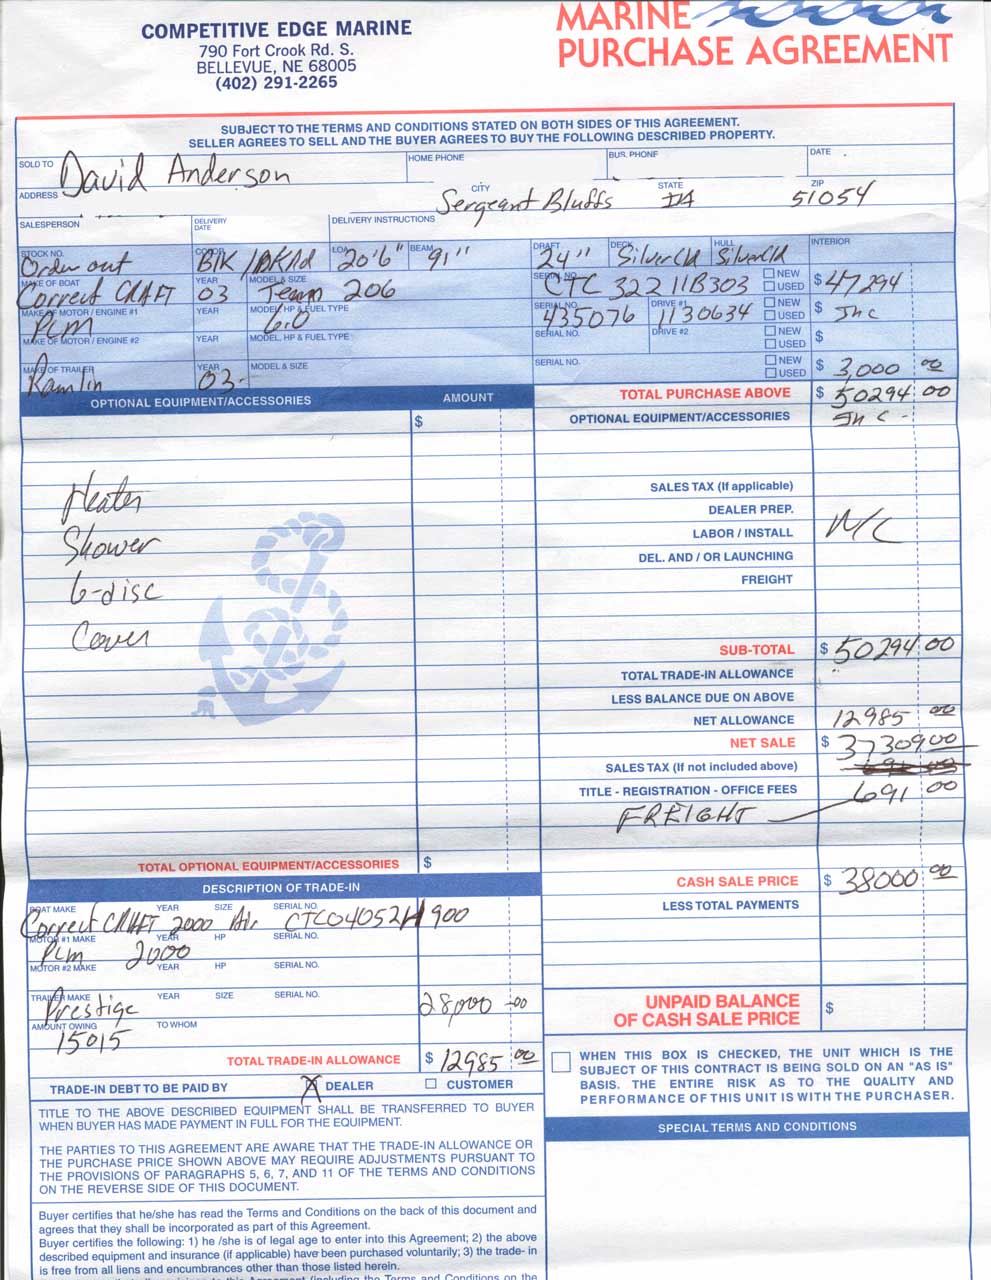 COMPETITIVE EDGE MARINE
790 Fort Crook Rd. S.
BELLEVUE, NE 68005
(402) 291-2265
MARINE
PURCHASE AGREEMENT
SUBJECT TO THE TERMS AND CONDITIONS STATED ON BOTH SIDES OF THIS AGREEMENT.
SELLER AGREES TO SELL AND THE BUYER AGREES TO BUY THE FOLLOWING DESCRIBED PROPERTY.
SOLD TO David Anderson HOME PHONE BUS. PHONE DATE
ADDRESS CITY Sergeant Bluffs STATE IA ZIP 51054
SALESPERSON DELIVERY DATE DELIVERY INSTRUCTIONS
STOCK NO. Order out COLOR Blk /DKRd LOA 20'6" BEAM 91" DRAFT 24" DECK SilverCld HULL SilverCld INTERIOR
MAKE OF BOAT Correct CRAFT YEAR 03 MODEL & SIZE Team 206 SERIAL NO. CTC 32211B303 NEW USED $ 47294
MAKE OF MOTOR / ENGINE #1 PCM YEAR MODEL, HP & FUEL TYPE 6.0 SERIAL NO. 435076 DRIVE #1 1130634 NEW USED $ Inc
MAKE OF MOTOR / ENGINE #2 YEAR MODEL, HP & FUEL TYPE SERIAL NO. DRIVE #2 NEW USED $
MAKE OF TRAILER Ramlin YEAR 03- MODEL & SIZE SERIAL NO. NEW USED $ 3,000 00
OPTIONAL EQUIPMENT/ACCESSORIES AMOUNT
$
Heater
Shower
6-disc
Cover
TOTAL OPTIONAL EQUIPMENT/ACCESSORIES $
TOTAL PURCHASE ABOVE $ 50294 00
OPTIONAL EQUIPMENT/ACCESSORIES Inc -
SALES TAX (If applicable)
DEALER PREP.
LABOR / INSTALL N/C
DEL. AND / OR LAUNCHING
FREIGHT
SUB-TOTAL $ 50294 00
TOTAL TRADE-IN ALLOWANCE
LESS BALANCE DUE ON ABOVE
NET ALLOWANCE 12985 00
NET SALE $ 37309 00
SALES TAX (If not included above)
TITLE - REGISTRATION - OFFICE FEES 691 00
FREIGHT
CASH SALE PRICE $ 38000 00
LESS TOTAL PAYMENTS
UNPAID BALANCE
OF CASH SALE PRICE $
DESCRIPTION OF TRADE-IN
BOAT MAKE Correct CRAFT YEAR 2000 SIZE Air SERIAL NO. CTC04052H900
MOTOR #1 MAKE PCM YEAR 2000 HP SERIAL NO.
MOTOR #2 MAKE YEAR HP SERIAL NO.
TRAILER MAKE Prestige YEAR SIZE SERIAL NO. 28,000 00
AMOUNT OWING 15015 TO WHOM
TOTAL TRADE-IN ALLOWANCE $ 12985 00
TRADE-IN DEBT TO BE PAID BY X DEALER CUSTOMER
TITLE TO THE ABOVE DESCRIBED EQUIPMENT SHALL BE TRANSFERRED TO BUYER
WHEN BUYER HAS MADE PAYMENT IN FULL FOR THE EQUIPMENT.
THE PARTIES TO THIS AGREEMENT ARE AWARE THAT THE TRADE-IN ALLOWANCE OR
THE PURCHASE PRICE SHOWN ABOVE MAY REQUIRE ADJUSTMENTS PURSUANT TO
THE PROVISIONS OF PARAGRAPHS 5, 6, 7, AND 11 OF THE TERMS AND CONDITIONS
ON THE REVERSE SIDE OF THIS DOCUMENT.
Buyer certifies that he/she has read the Terms and Conditions on the back of this document and
agrees that they shall be incorporated as part of this Agreement.
Buyer certifies the following: 1) he /she is of legal age to enter into this Agreement; 2) the above
described equipment and insurance (if applicable) have been purchased voluntarily; 3) the trade- in
is free from all liens and encumbrances other than those listed herein.
WHEN THIS BOX IS CHECKED, THE UNIT WHICH IS THE
SUBJECT OF THIS CONTRACT IS BEING SOLD ON AN "AS IS"
BASIS. THE ENTIRE RISK AS TO THE QUALITY AND
PERFORMANCE OF THIS UNIT IS WITH THE PURCHASER.
SPECIAL TERMS AND CONDITIONS